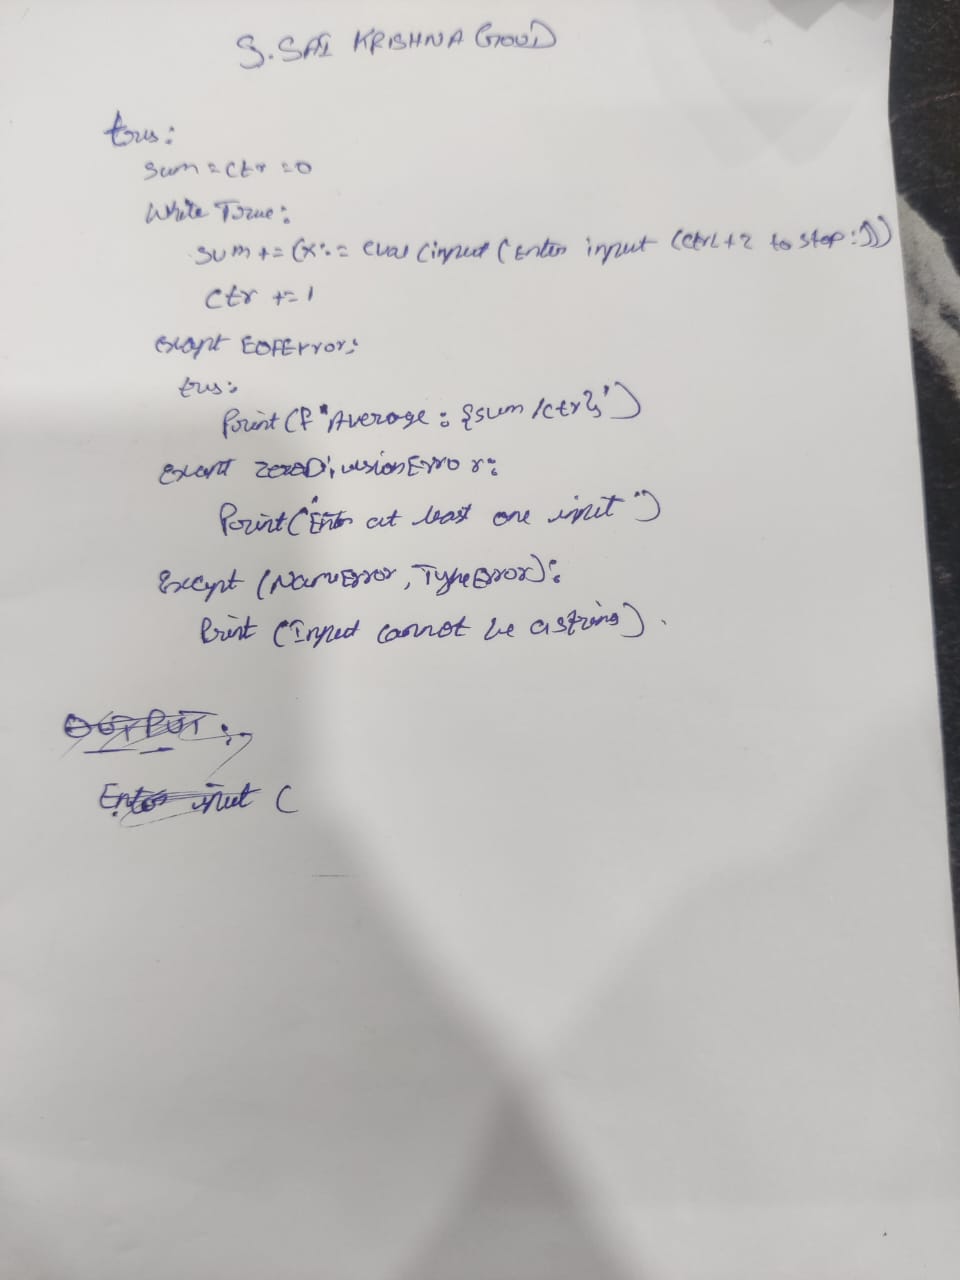 S. SAI KRISHNA GOUD
try:
sum = ctr = 0
While True:
sum += (x:= eval (input (Enter input (ctrl+z to stop:)))
ctr += 1
except EOFError:
try:
Print (f"Average: {sum/ctr}")
Except ZeroDivisionError:
Print ("Enter at least one input")
Except (NameError, TypeError):
Print (Input cannot be a string).
OUTPUT:
Enter input (